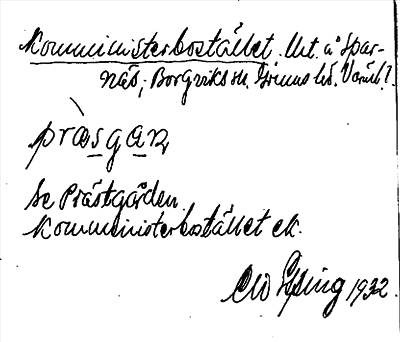 Kommunisterbostället. Utt. å Spar-
näs, Borgviks sn. Grums hd. Värml.
pràsgaɳ
Se Prästgården.
Komministerbostället ek.
1932.